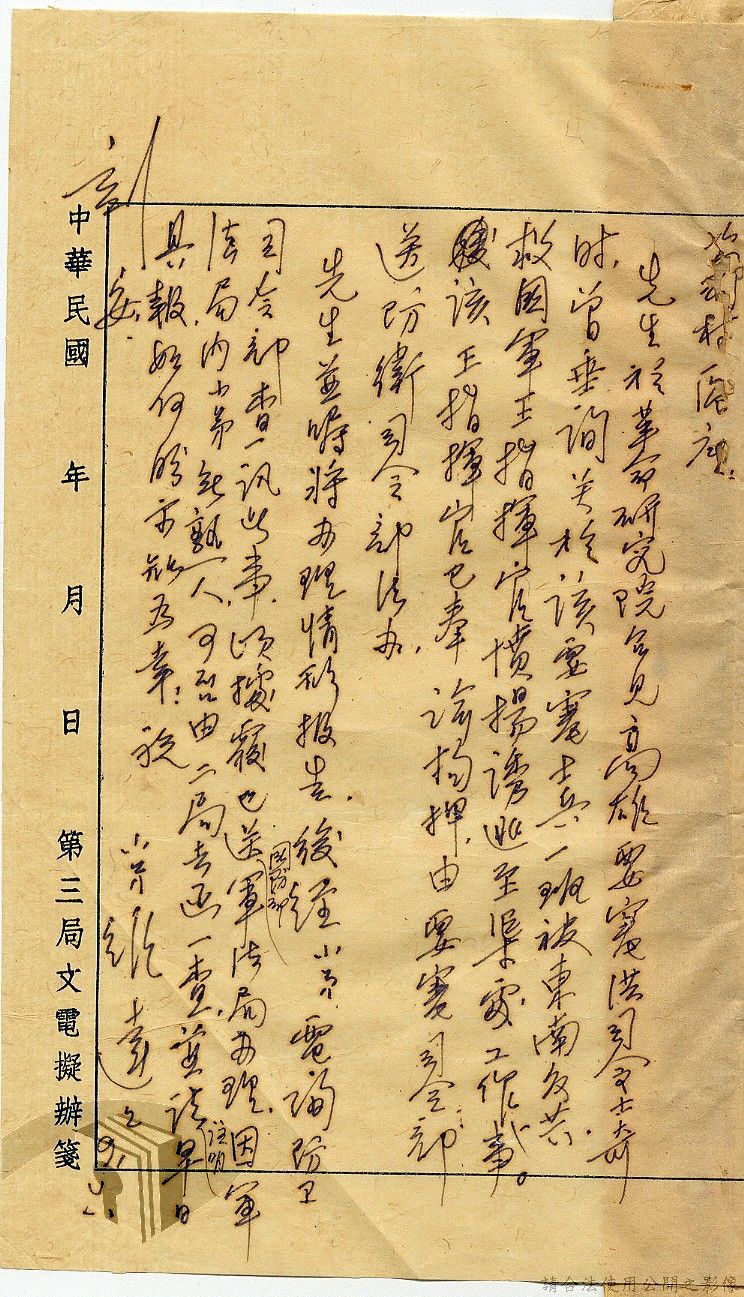 先生於革命研究院召見高雄要塞洪司令士奇
時，曾垂詢关於該要塞士兵一班被東南反共
救國軍王指揮官 誘逃至 處工作事。
該王指揮官已奉 諭拘押，由要塞司令部
送防衛司令部法办，
先生並囑將办理情形報告，後經 電詢防卫
司令部查訊此事，頃據覆已送軍法局办理，因軍
國防部
法局內小弟無熟人，可否由二局去函一查，並請早日
註明
具報，如何 示知為幸，祝
安
中華民國 年 月 日 第三局文電擬辦箋
請合法使用公開之影像